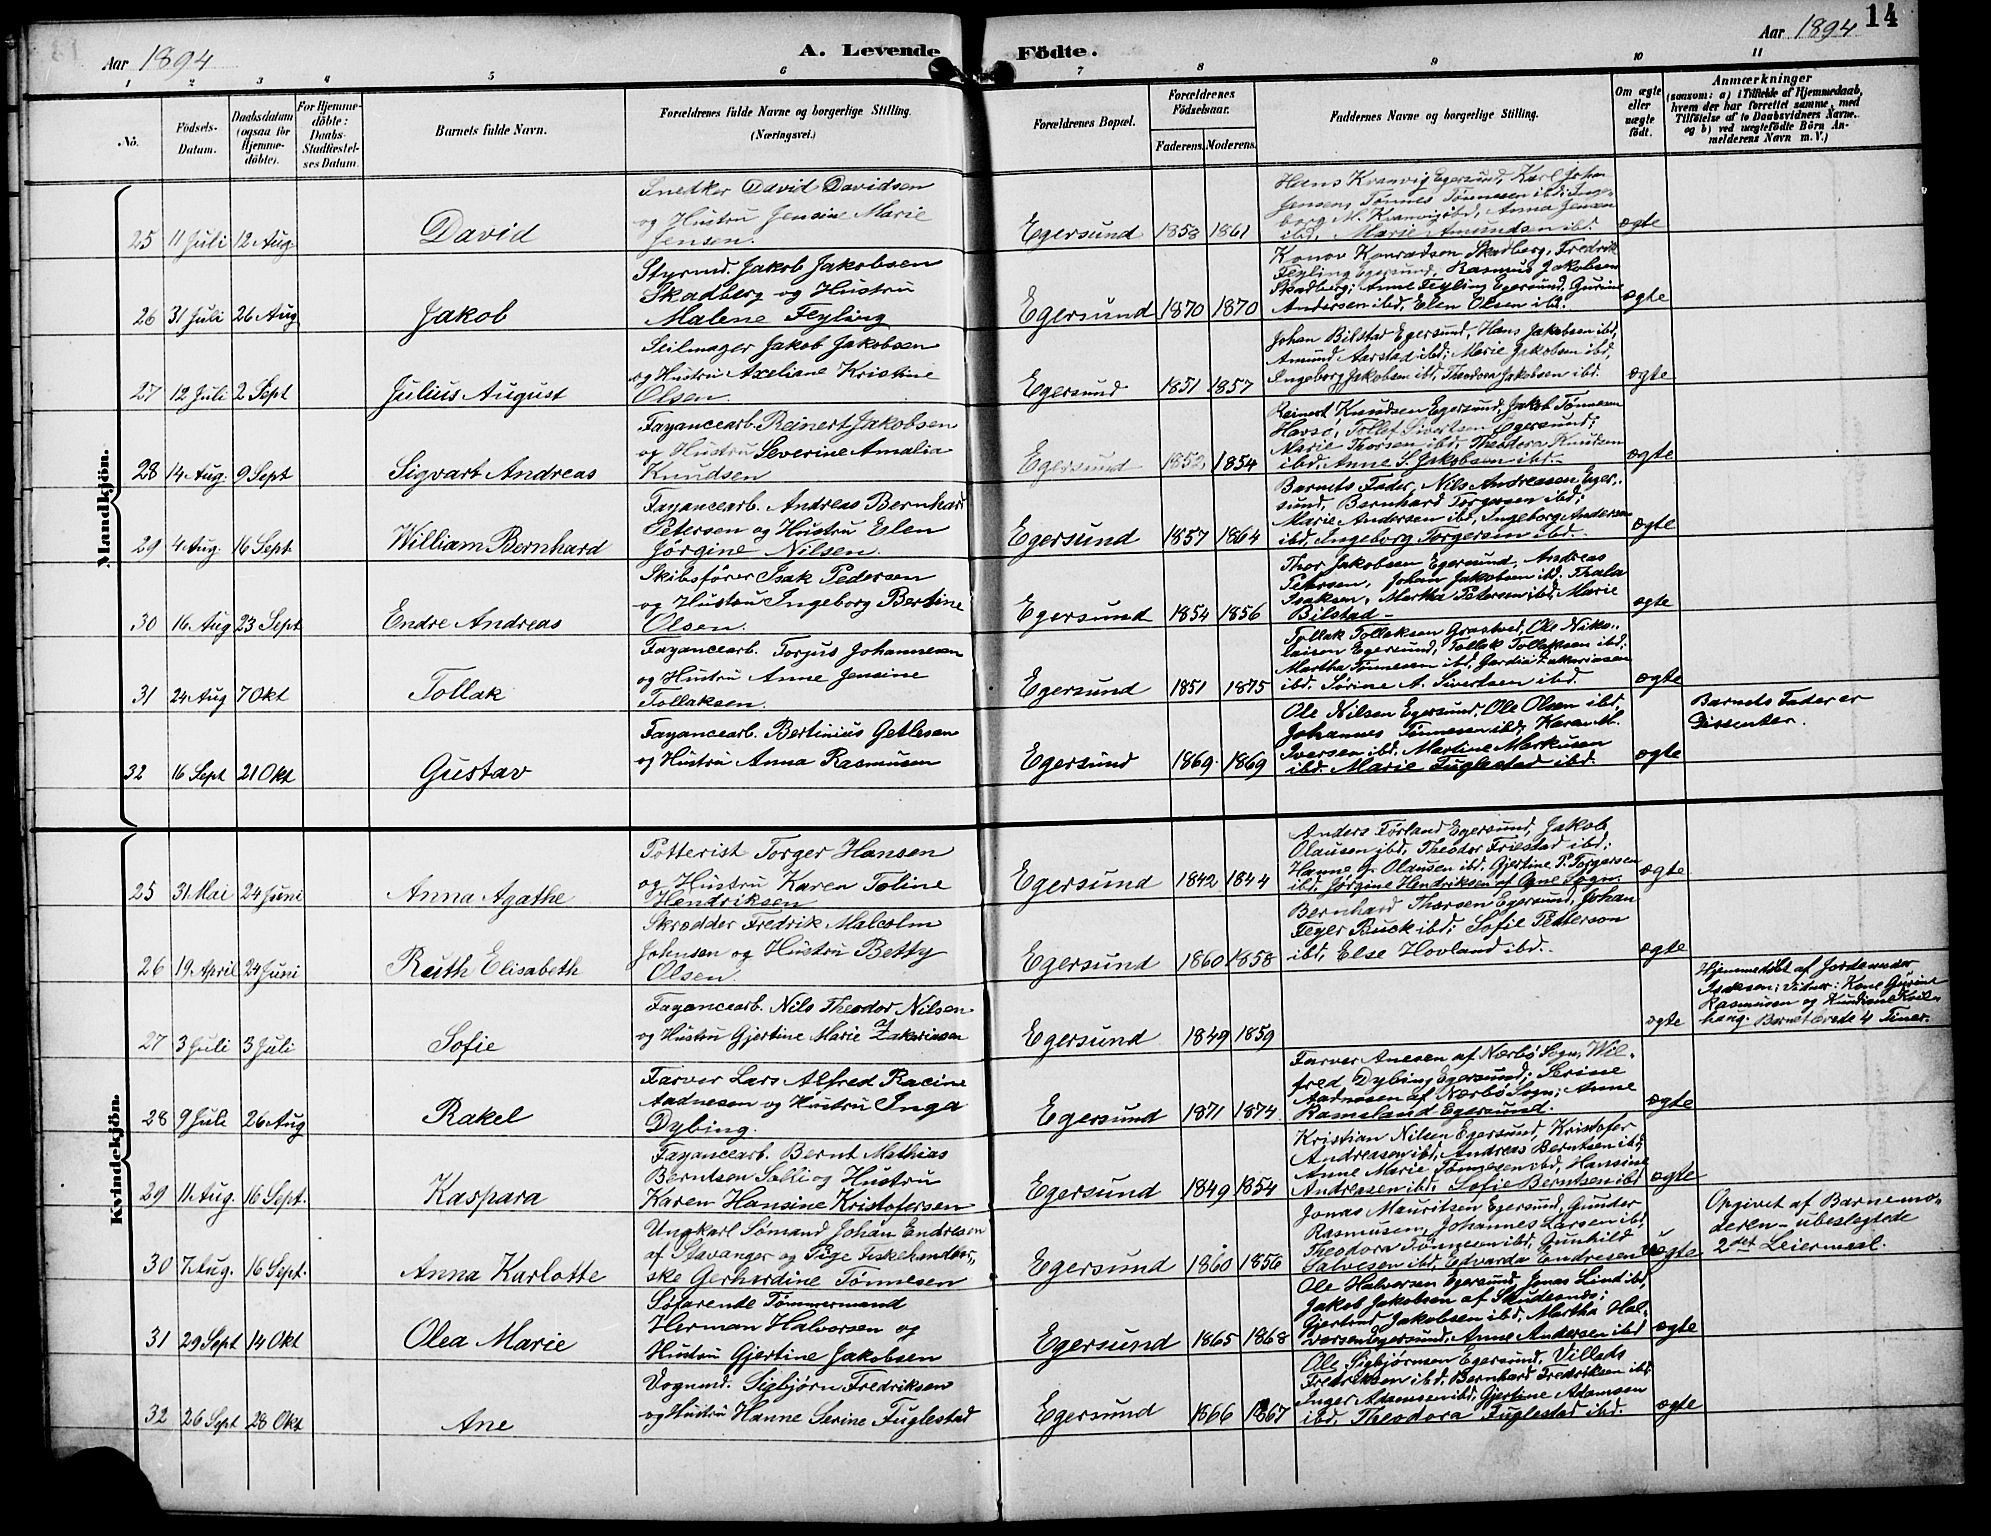 Aar 1894
A. Levende Födte.
Aar 1894
14
1 2 3 4 5 6 7 8 9 10 11
No.
Födsels-Datum.
Daabsdatum (ogsaa for Hjemmedöbte).
For Hjemmedöbte: Daabs-Stadfæstelses Datum.
Barnets fulde Navn.
Forældrenes fulde Navne og borgerlige Stilling.
(Næringsvei.)
Forældrenes Bopæl.
Forældrenes Födselsaar.
Faderens. Moderens.
Faddernes Navne og borgerlige Stilling.
Om ægte eller uægte födt.
Anmærkninger
(saasom: a) i Tilfælde af Hjemmedaab,
hvem der har forrettet samme, med
Tilföielse af to Daabsvidners Navne.
og b) ved uægtefödte Börn An-
melderens Navn m. V.)
Mandkjön.
25 11 Juli 12 Aug David
Snedker David Davidsen
og Hustru Jensine Marie
Jensen.
Egersund 1853 1861
Hans Kranvig Egersund, Karl Johan
Jensen, Tønnes Tønnesen ibd; Inge-
borg M. Kranvig ibd, Anna Jensen
ibd, Marie Amundsen ibd.
ægte
26 31 Juli 26 Aug Jakob
Styrmd. Jakob Jakobsen
Skadberg og Hustru
Malene Feyling
Egersund 1870 1870
Konov Konradsen Skadberg, Fredrik
Feyling Egersund, Rasmus Jakobsen
Skadberg; Anne Feyling Egersund, Gurine
Andersen ibd, Elen Olsen ibd.
ægte
27 12 Juli 2 Sept Julius August
Seilmager Jakob Jakobsen
og Hustru Axeliane Kristine
Olsen.
Egersund 1851 1857
Johan Bilstad Egersund, Hans Jakobsen ibd,
Amund Aarstad ibd; Marie Jakobsen ibd,
Ingeborg Jakobsen ibd, Theodora Jakobsen ibd.
ægte
28 14 Aug. 9 Sept Sigvart Andreas
Fayancearb. Reinert Jakobsen
og Hustru Severine Amalia
Knudsen
Egersund 1852 1854
Reinert Knudsen Egersund, Jakob Tønnesen
Havsø, Tollef Sivertsen Egersund;
Marie Thorsen ibd, Theodora Knudsen
ibd. Anne S. Jakobsen ibd.
ægte
29 4 Aug. 16 Sept. William Bernhard
Fayancearb. Andreas Bernhard
Petersen og Hustru Elen
Jørgine Nilsen.
Egersund 1857 1864
Barnets Fader, Nils Andreasen Eger-
sund, Bernhard Torgersen ibd;
Marie Andersen ibd, Ingeborg Andersen
ibd, Ingeborg Torgersen ibd.
ægte
30 16 Aug 23 Sept Endre Andreas
Skibsfører Isak Pedersen
og Hustru Ingeborg Bertine
Olsen.
Egersund 1854 1856
Thor Jakobsen Egersund, Andreas
Petersen, Johan Jakobsen ibd. Thala
Isaksen, Martha Petersen ibd, Marie
Bilstad
ægte
31 24 Aug 7 Okt Tollak
Fayancearb. Torjus Johannesen
og Hustru Anne Jensine
Tollaksen.
Egersund 1851 1875
Tollak Tollaksen Grastved, Ole Niko-
laisen Egersund, Tollak Tollaksen ibd;
Martha Tønnesen ibd, Zakariasen
ibd. Sørine A. Sivertsen ibd.
ægte
Barnets Fader er
Dissenter.
32 16 Sept 21 Okt Gustav
Fayancearb. Bertinius Getlesen
og Hustru Anna Rasmusen
Egersund 1869 1869
Ole Nilsen Egersund, Ole Olsen ibd,
Johannes Tønnesen ibd; Karen M.
Iversen ibd. Martine Markusen
ibd. Marie Fuglestad ibd.
ægte
Kvindekjön.
25 31 Mai 24 Juni Anna Agathe
Potterist Torger Hansen
og Hustru Karen Toline
Hendriksen
Egersund 1842 1844
Anders Førland Egersund, Jakob
Olausen ibd, Theodor Friestad ibd;
Hanne G. Olausen ibd, Gjertine P. Torgersen
ibd, Jørgine Hendriksen af Ogne Sogn.
ægte
26 19 April 24 Juni Ruth Elisabeth
Skrædder Fredrik Malcolm
Johnsen og Hustru Betty
Olsen.
Egersund 1860 1858
Bernhard Thorsen Egersund, Johan
Feyer Buck ibd; Sofie Petterson
ibd, Else Hovland ibd.
ægte
27 3 Juli 3 Juli Sofie
Fayancearb. Nils Theodor Nilsen
og Hustru Gjertine Marie Zakariasen
Egersund 1849 1859
ægte
Hjemmedøbt af Jordemoder
Isaksen; Vidner: Kone Gurine
Rasmusen og Kvel-
haug. Barnet levede 4 Timer.
28 9 Juli 26 Aug Rakel
Farver Lars Alfred Racine
Aadnesen og Hustru Inga
Dybing.
Egersund 1871 1874
Farver Anesen af Nærbø Sogn, Wil-
fred Dybing Egersund; Serine
Aadnesen af Nærbø Sogn; Anne
Ramsland Egersund.
ægte
29 11 Aug. 16 Sept. Kaspara
Fayancearb. Bernt Mathias
Berntsen Solli og Hustru
Karen Hansine Kristofersen
Egersund 1849 1854
Kristian Nilsen Egersund, Kristofer
Andreasen ibd, Andreas Berntsen ibd,
Anne Marie Tønnesen ibd, Hansine
Andreasen ibd. Sofie Berntsen ibd
ægte
30 7 Aug. 16 Sept. Anna Karlotte
Ungkarl Sømand Johan Endresen
af Stavanger og Pige Fiskehandler-
ske Gerhardine Tønnesen
Egersund 1860 1856
Jonas Mauritsen Egersund, Gunder
Rasmusen, Johannes Larsen ibd,
Theodora Tønnesen ibd, Gunhild
Salvesen ibd, Edvarda Endresen
uægte
Opgivet af Barnemo-
deren - ubeslegtede
2det Leiermaal.
31 29 Sept 14 Okt Olea Marie
Søfarende Tømmermand
Herman Halvorsen og
Hustru Gjertine Jakobsen
Egersund 1865 1868
Ole Halvorsen Egersund, Jonas Lind ibd,
Jakob Jakobsen af Skudesnæs;
Gjertine Jakobsen ibd, Martha Hal-
vorsen Egersund, Anne Andersen ibd
ægte
32 26 Sept 28 Okt Ane
Vognmd. Sigbjørn Fredriksen
og Hustru Hanne Serine Fuglestad
Egersund 1866 1867
Ole Sigbjørnsen Egersund, Villads
Fredriksen ibd, Bernhard Fredriksen ibd.
Inger Adamsen ibd, Gjertine Adamsen
ibd, Theodora Fuglestad ibd.
ægte